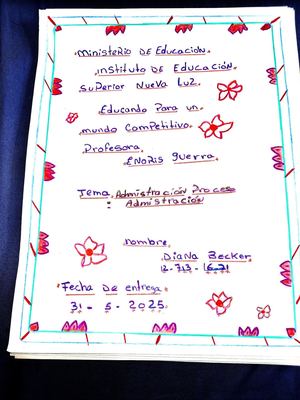 Ministerio de Educación.
Instituto de Educación
Superior Nueva Luz.
Educando Para un
mundo Competitivo.
Profesora.
Enoris Guerra.
Tema. Admistración Proceso
: Admistración
nombre.
Diana Becker.
Fecha de entrega.
31 - 5 - 2025.